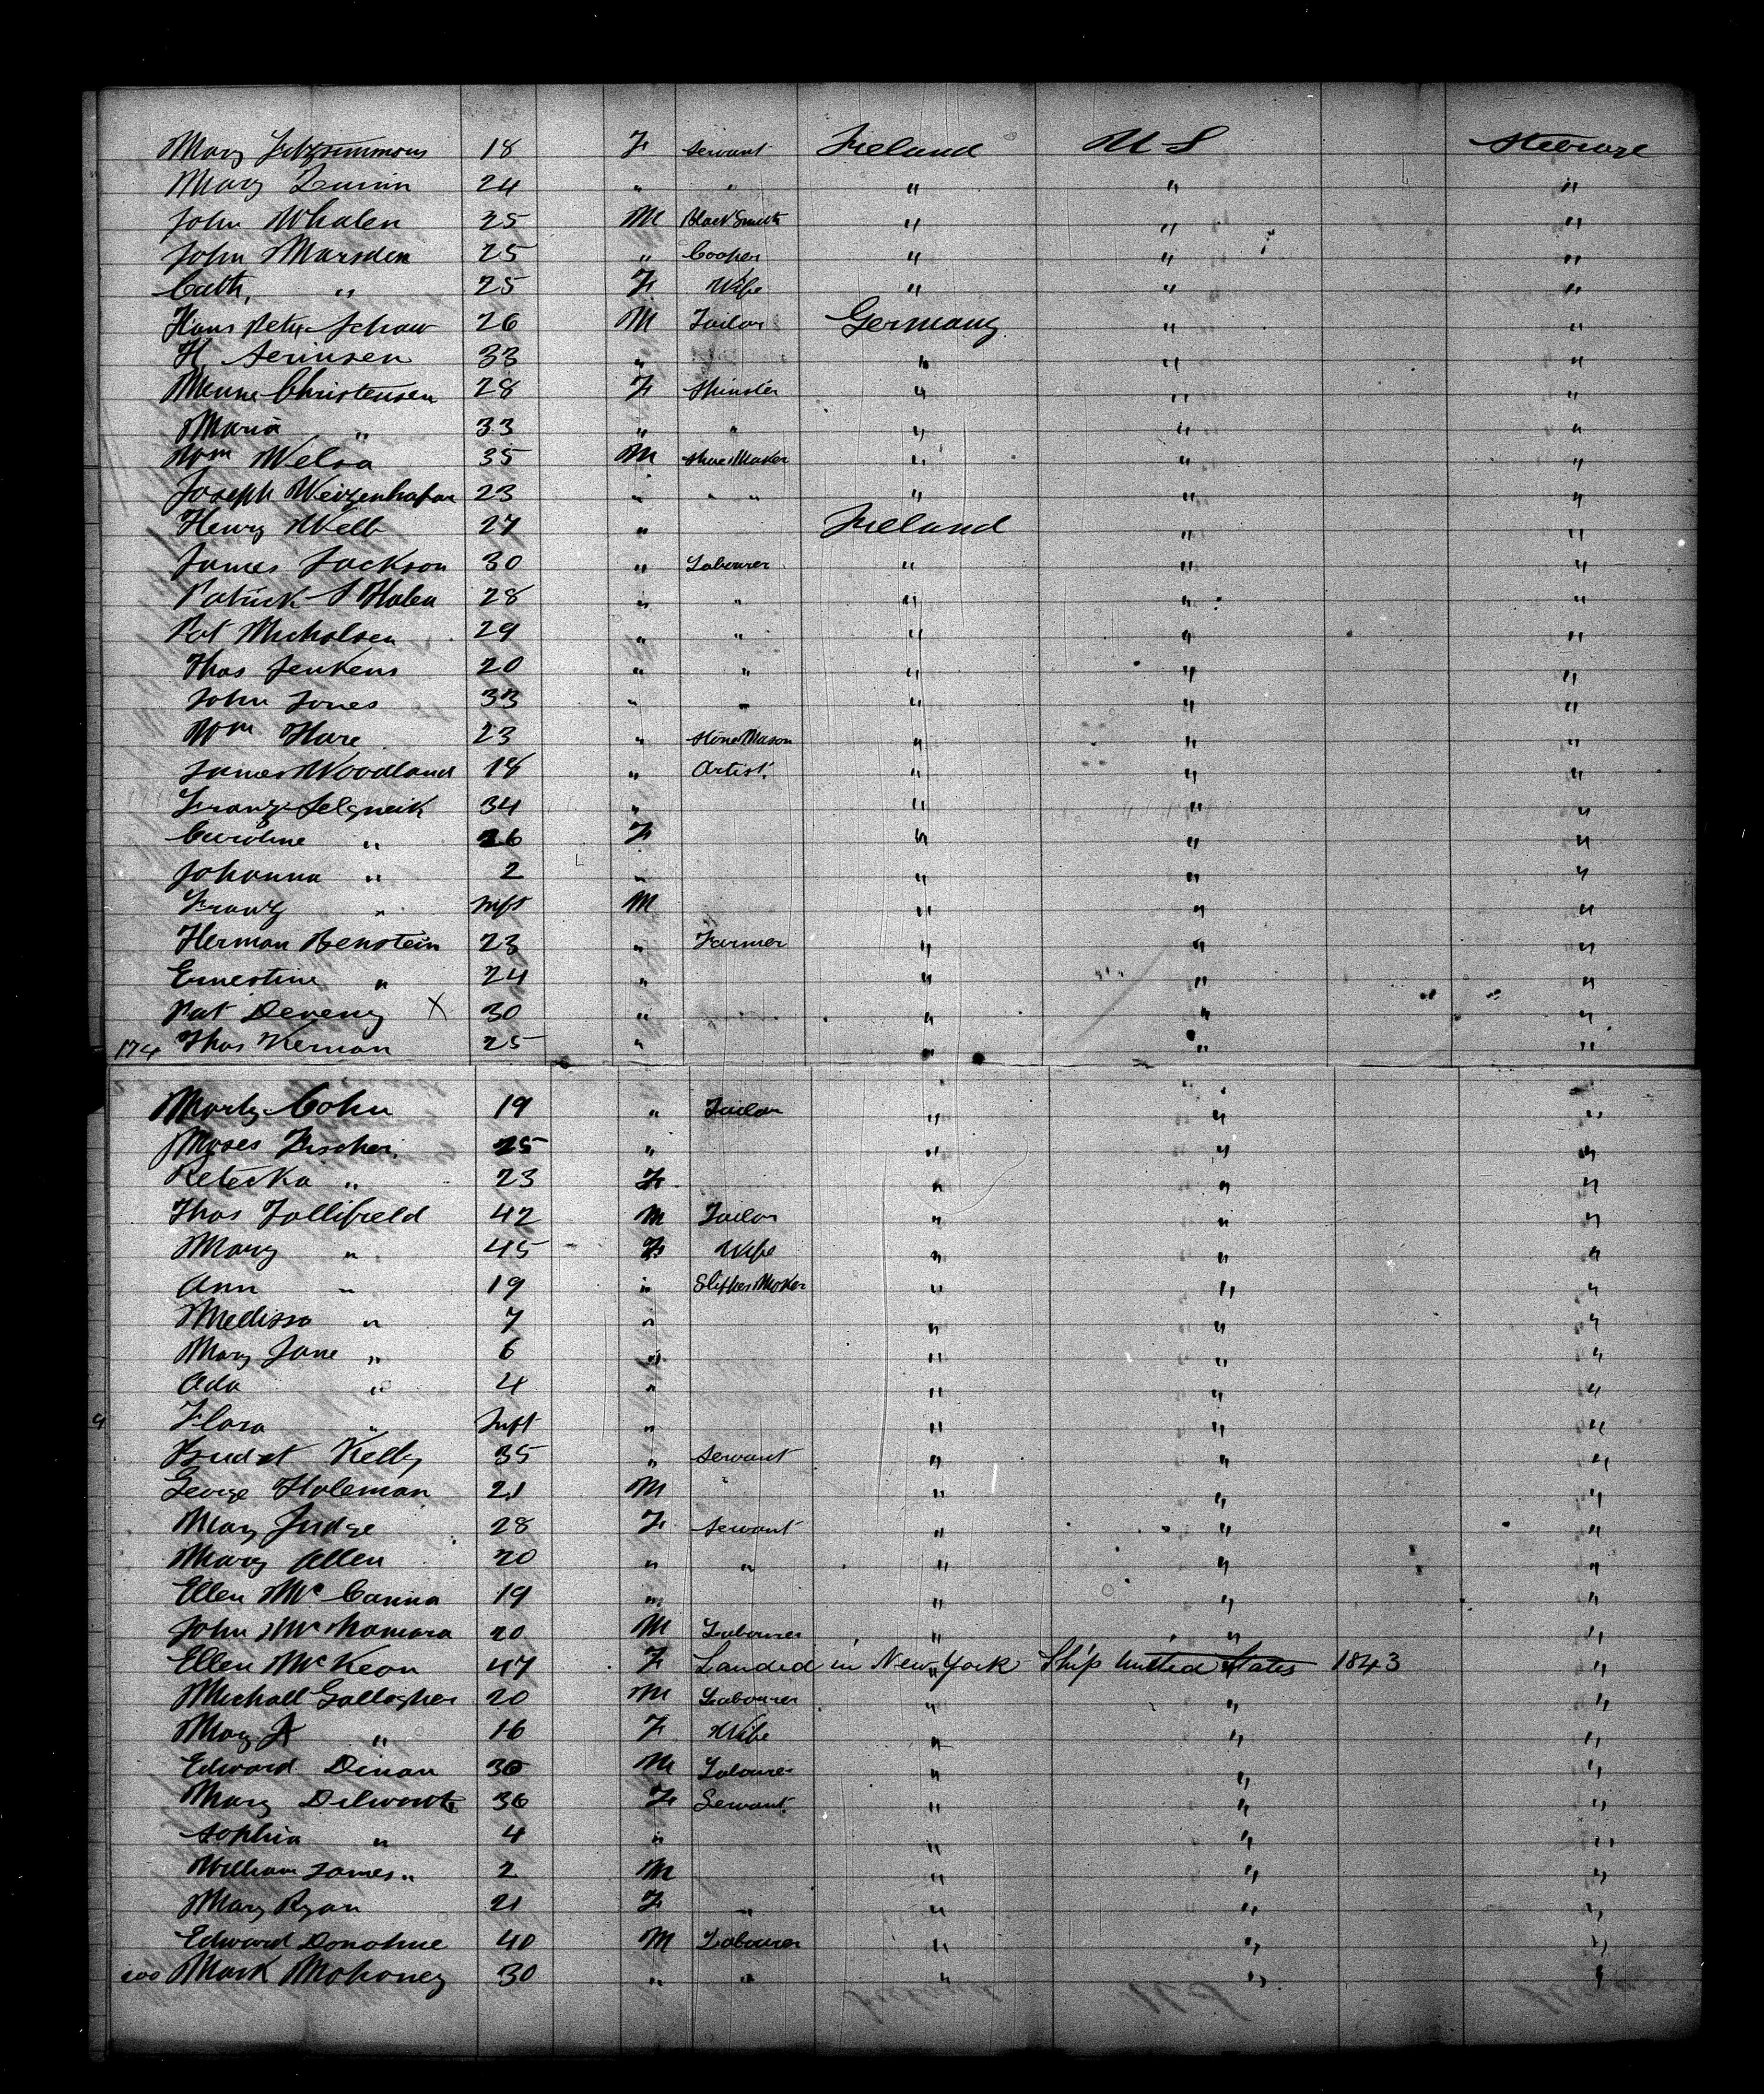 Mary Fitzsimmons 18 F Servant Ireland U S Steerage
Mary Quinn 24 " " " " "
John Whalen 25 M Black Smith " " "
John Marsden 25 " Cooper " " "
Cath, " 25 F Wife " " "
Hans Peter Schaw 26 M Tailor Germany " "
H 33 " " " "
Christensen 28 F Spinster " " "
Maria " 33 " " " " "
Wm 35 M Shoe Maker " " "
Joseph 23 " " " " " "
Henry Webb 27 " Ireland " "
James Jackson 30 " Labourer " " "
Patrick 28 " " " " "
Pat 29 " " " " "
Thos Jenkens 20 " " " " "
John Jones 33 " " " " "
Wm Hare 23 " Stone Mason " " "
James Woodland 18 " Artist. " " "
34 " " " "
Caroline " 26 F " " "
Johanna " 2 " " " "
Frantz " Inft M " " "
Herman 23 " Farmer " " "
Ernestine " 24 " " " "
Pat Deveny X 30 " " " "
174 Thos Kernan 25 " " " "
Cohn 19 " Tailor " " "
Moses Fischer. 25 " " " "
" 23 F " " "
Thos Tollifield 42 M Tailor " " "
Mary " 45 F Wife " " "
Ann " 19 " Slipper Maker " " "
Medissa " 7 " " " "
Mary Jane " 6 " " " "
Ada " 4 " " " "
Flora " Inft " " " "
Kelly 35 " Servant " " "
George Holeman 21 M " " " "
Mary Judge 28 F Servant " " "
Mary Allen 20 " " " " "
Ellen Mc Canna 19 " " " "
John McNamara 20 M Labourer " " "
Ellen McKeon 47 F Landed in New York Ship United States 1843 "
Michall Gallagher 20 M Labourer " " "
Mary A " 16 F Wife " " "
Edward Dinan 30 M Labourer " " "
Mary Dilworth 36 F Servant. " " "
Sophia " 4 " " " "
William James " 2 M " " "
Mary Ryan 21 F " " " "
Edward Donohue 40 M Labourer " " "
200 Mark Mahoney 30 " " " " "